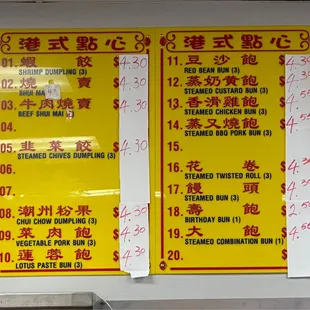 港式點心
01. 蝦 餃 $4.30
SHRIMP DUMPLING (3)
02. 燒 賣 $4.30
SHUI MAI
03. 牛肉燒賣 $4.30
BEEF SHUI MAI
04.
05. 韭菜餃 $4.30
STEAMED CHIVES DUMPLING (3)
06.
07.
08. 潮州粉果 $4.30
CHUI CHOW DUMPLING (3)
09. 菜肉飽 $4.30
VEGETABLE PORK BUN (3)
10. 蓮蓉飽 $4.30
LOTUS PASTE BUN (3)
港式點心
11. 豆沙飽 $4.30
RED BEAN BUN (3)
12. 蒸奶黃飽
STEAMED CUSTARD BUN (3)
13. 香滑雞飽
STEAMED CHICKEN BUN (3)
14. 蒸叉燒飽
STEAMED BBQ PORK BUN (3)
15.
16. 花 卷 $4.30
STEAMED TWISTED ROLL (3)
17. 饅 頭
STEAMED BUN (3)
18. 壽 飽
BIRTHDAY BUN (1)
19. 大 飽
STEAMED COMBINATION BUN (1)
20.